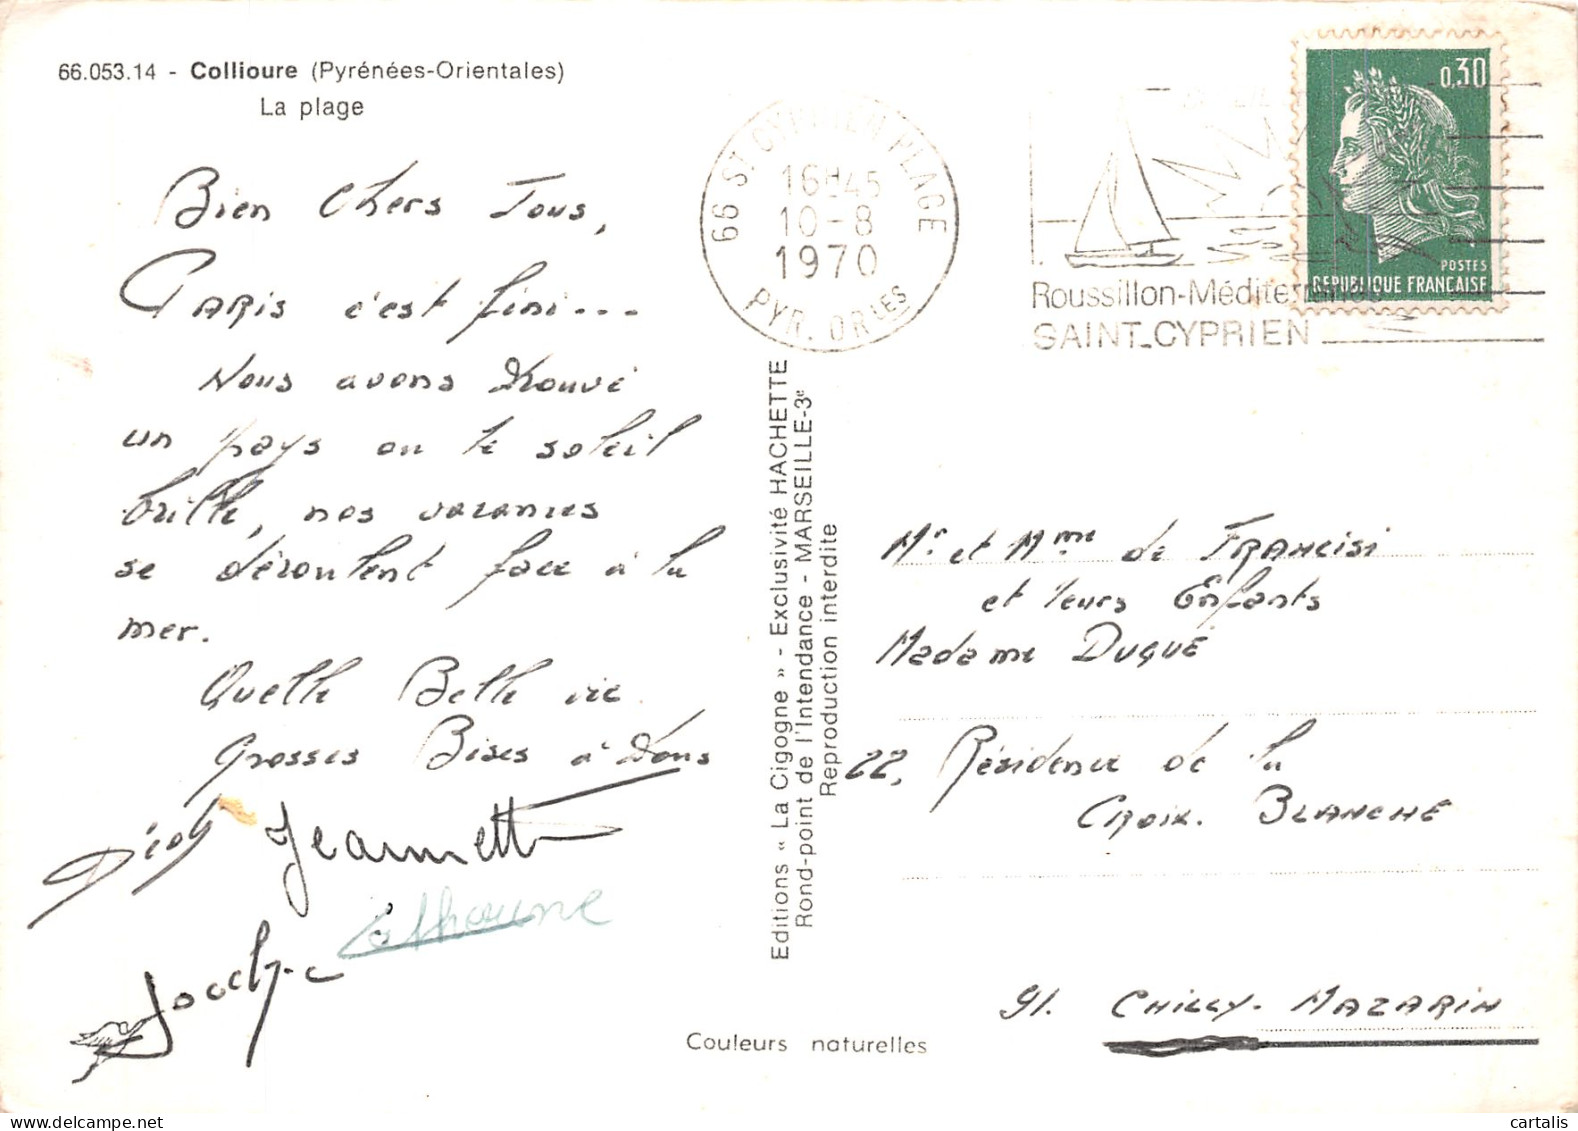 66.053.14 - Collioure (Pyrénées-Orientales)
La plage
Bien Chers Tous,
PARIS c'est fini...
Nous avons trouvé
un pays ou le soleil
brille, nos vacances
se déroulent face à la
mer.
Quelle Belle vie
Grosses Bises à tous
Jeannette
Catherine
Jocelyne
66 ST CYPRIEN PLAGE
16H45
10-8
1970
PYR. ORles
Roussillon-Méditerranée
SAINT-CYPRIEN
0,30
POSTES
REPUBLIQUE FRANCAISE
Editions « La Cigogne » - Exclusivité HACHETTE
Rond-point de l'Intendance - MARSEILLE-3e
Reproduction interdite
Mr et Mme de FRANCISI
et leurs Enfants
Madame DUQUE
22, Résidence de la
CROIX. BLANCHE
91. CHILLY-MAZARIN
Couleurs naturelles
cartalis